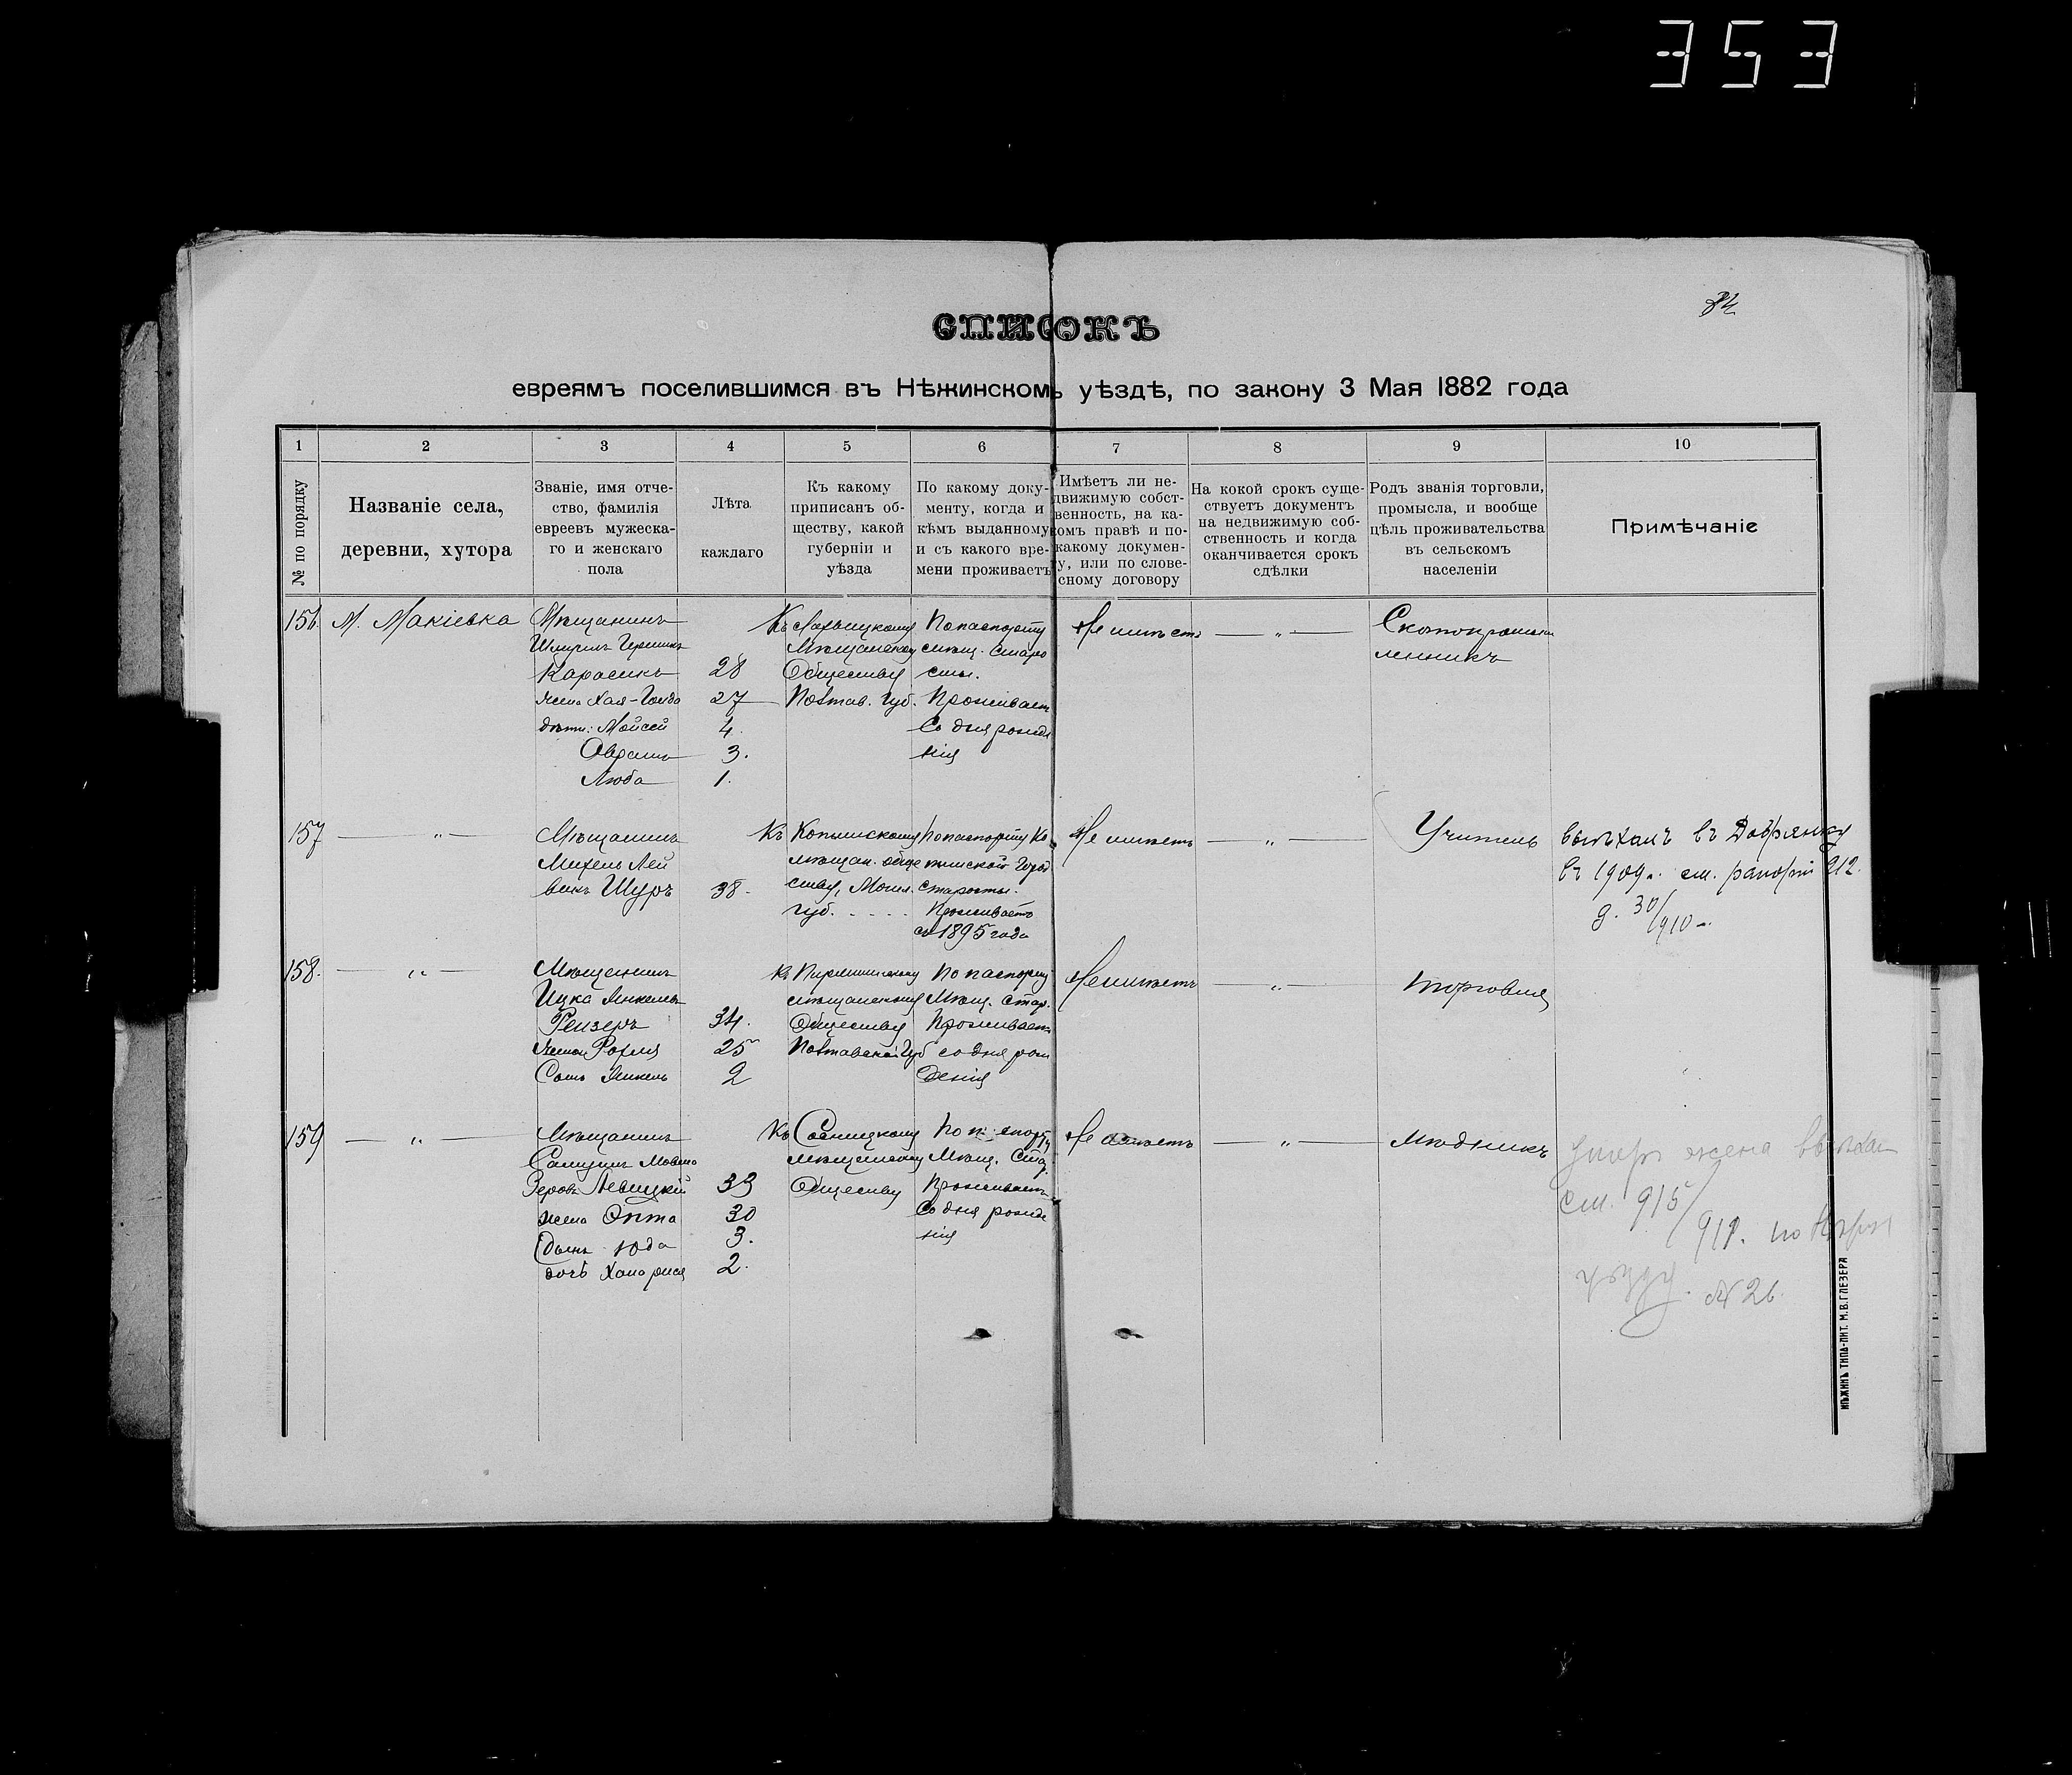 353
СПИСОКЪ
евреямъ поселившимся въ Нѣжинскомъ уѣздѣ, по закону 3 Мая 1882 года
1 2 3 4 5 6 7 8 9 10
№ по порядку
Названіе села,
деревни, хутора
Званіе, имя отче-
ство, фамилія
евреевъ мужеска-
го и женскаго
пола
Лѣта
каждаго
Къ какому
приписанъ об-
ществу, какой
губерніи и
уѣзда
По какому доку-
менту, когда и
кѣмъ выданному
и съ какого вре-
мени проживаетъ
Имѣетъ ли не-
движимую собст-
венность, на ка-
комъ правѣ и по-
какому докумен-
ту, или по слове-
сному договору
На кокой срокъ суще-
ствуетъ документъ
на недвижимую соб-
ственность и когда
оканчивается срокъ
сдѣлки
Родъ званія торговли,
промысла, и вообще
цѣль проживательства
въ сельскомъ
населеніи
Примѣчаніе
156.
М. Макіевка
Мѣщанинъ
Карасикъ
жена Хая-
дѣти: Мойсей
Аврамъ
Люба
28
27
4.
3.
1.
Мѣщанскому
Обществу
Полтав. Губ.
По паспорту
мѣщ. Старо
сты.
Проживаетъ
Со дня рожде
нія
Не имѣетъ
— „ —
157
— „ —
Мѣщанинъ
Михель Лей
бовъ Шуръ
38.
Къ Копысскому
мѣщан. обще
ству, Могил.
губ.
По паспорту Ко
старосты.
Проживаетъ
съ 1895 года
Не имѣетъ
— „ —
Учитель
выѣхалъ въ Добрянку
въ 1909 г. см. рапортъ 212.
д. 30/910 г.
158.
— „ —
Мѣщанинъ
Ицка Янкель
Рейзеръ
жена Рохля
Сынъ Янкель
34.
25
2
Къ
мѣщанскому
Обществу
Полтавской Губ
По паспорту
Мѣщ. Стар.
Проживаетъ
со дня рож
денія
Не имѣетъ
— „ —
торговля
159
— „ —
Мѣщанинъ
Левицкій
жена
Сынъ Юда
дочь Хана
33
30
3.
2.
Къ Сосницкому
мѣщанскому
Обществу
По паспорту
Мѣщ. Стар.
Проживаетъ
Со дня рожде
нія
Не имѣетъ
— „ —
Мѣдникъ
умеръ жена выѣхала
см. 915/911. по
уѣзду. № 26.
НѢЖИНЪ ТИПО-ЛИТ. М.В.ГЛЕЗЕРА